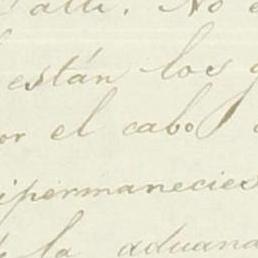 alli. No
están los
or el cabo
permanecies
la aduana